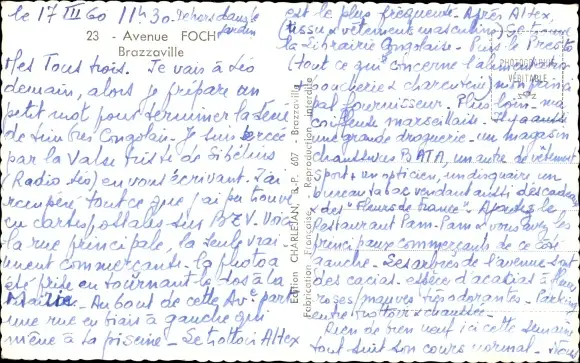 le 17 III 60 11h30 dehors dans le jardin
23 - Avenue FOCH
Brazzaville
Mes Tous trois. Je vais à Léo
demain, alors je prépare un
petit mot pour terminer la série
de timbres Congolais. Je suis bercée
par la Valse triste de Sibélius
(Radio Léo) en vous écrivant. J'ai
récupéré tout ce que j'ai pu trouver
en cartes postales sur BZV. Voici
la rue principale, la seule vrai-
ment commerçante. La photo a
été prise en tournant le dos à la
Mairie. Au bout de cette Av. part
une rue en biais à gauche qui
mène à la piscine. Le trottoir Altex
est le plus fréquenté. Après Altex,
(tissu & vêtement masculins)
la Librairie Congolaise. Puis le Presto
(tout ce qui concerne l'alimentation
boucherie & charcuterie) mon princi-
pal fournisseur. Plus loin ma
coiffeuse marseillaise. Il y a aussi
une grande droguerie - un magasin
chaussures BATA, un autre de vêtements
sport, un opticien, un disquaire, un
bureau tabac vendant aussi des cadeaux
des "Fleurs de France". Ajoutez le
restaurant Pam-Pam & vous avez les
principaux commerçants de ce côté
gauche. Les arbres de l'avenue sont
des cacias - espèce d'acacias à fleurs
roses/mauves très odorantes. Parking
entre trottoir & chaussée.
Rien de bien neuf ici cette semaine
tout suit son cours normal.
Edition CHARLEJAN, B.P. 607 - Brazzaville
Fabrication Française - Reproduction interdite
PHOTOGRAPHIE
VÉRITABLE